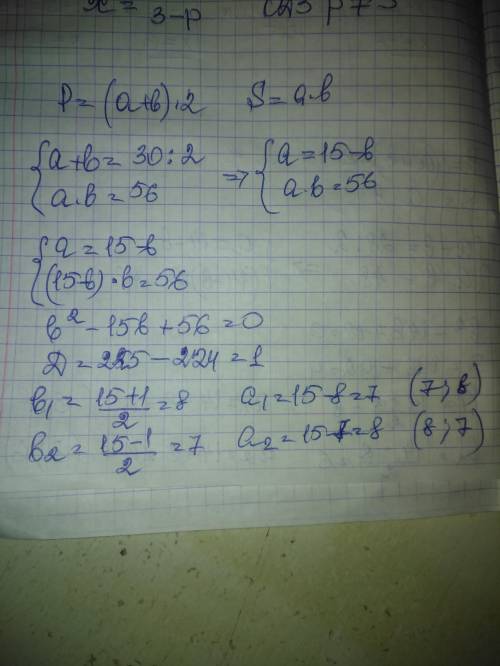 x = 3-p
P = (a+b)·2 S = a·b
{a+b = 30:2 => {a = 15-b
{a·b = 56 {a·b = 56
{a = 15-b
{(15-b)·b = 56
b² - 15b + 56 = 0
D = 225 - 224 = 1
b₁ = (15+1)/2 = 8 a₁ = 15-8 = 7 (7; 8)
b₂ = (15-1)/2 = 7 a₂ = 15-7 = 8 (8; 7)